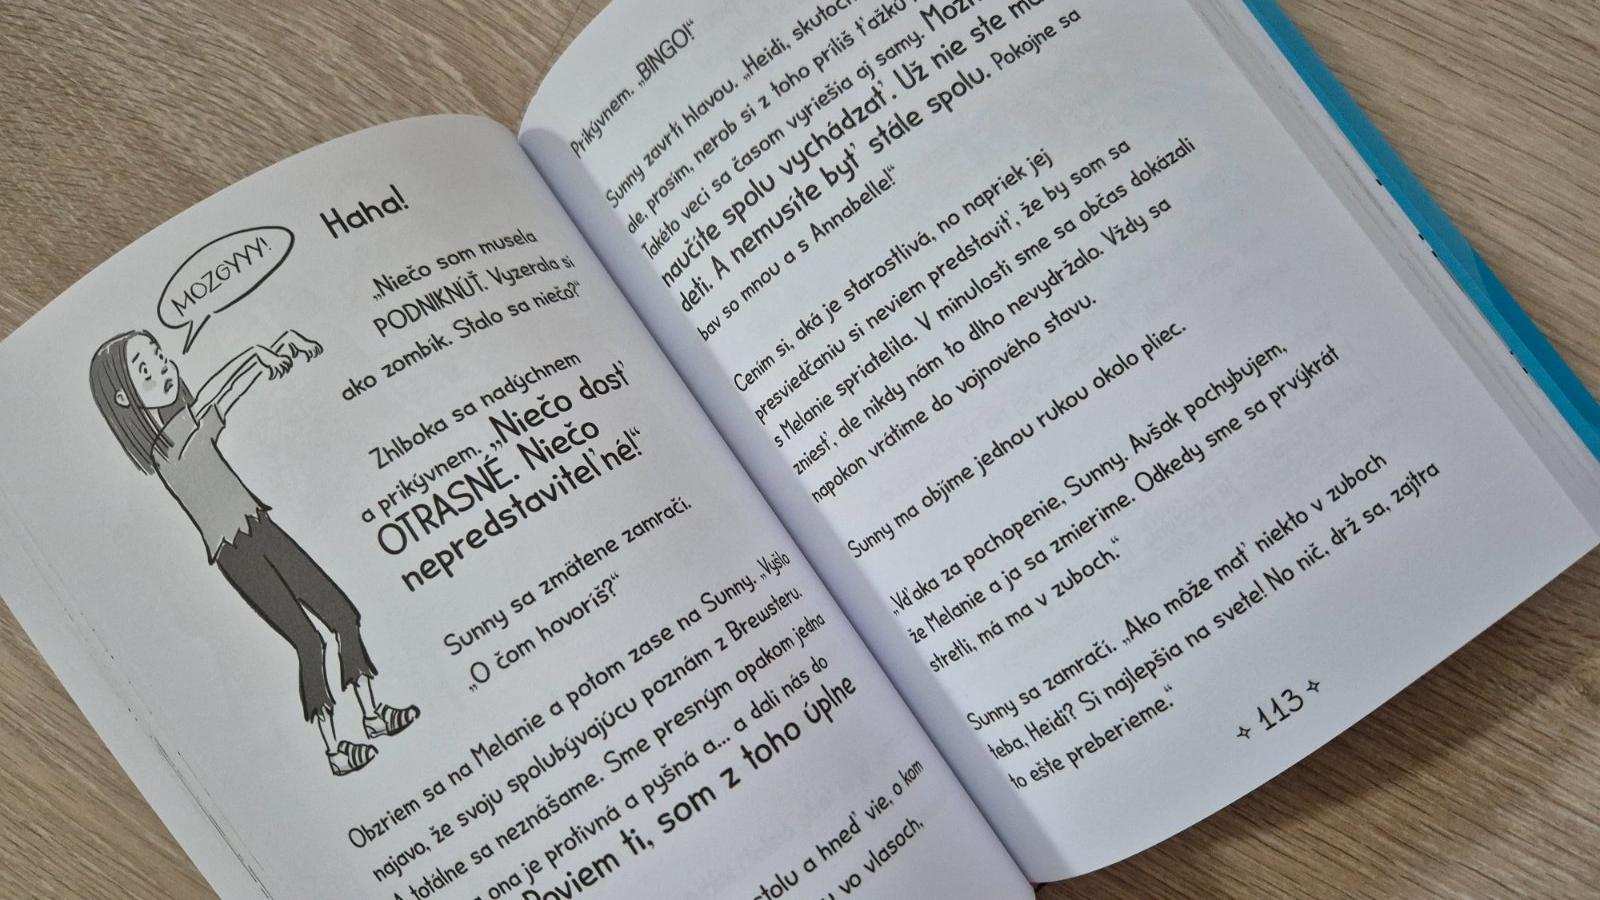 MOZGYYY!
Haha!
„Niečo som musela
PODNIKNÚŤ. Vyzerala si
ako zombík. Stalo sa niečo?“
Zhlboka sa nadýchnem
a prikývnem. „Niečo dosť
OTRASNÉ. Niečo
nepredstaviteľné!“
Sunny sa zmätene zamračí.
„O čom hovoríš?“
Obzriem sa na Melanie a potom zase na Sunny. „Vyšlo
najavo, že svoju spolubývajúcu poznám z Brewsteru.
A totálne sa neznášame. Sme presným opakom jedna
ona je protivná a pyšná a... a dali nás do
Poviem ti, som z toho úplne
stolu a hneď vie, o kom
vo vlasoch,
Prikývnem. „BINGO!“
Sunny zavrtí hlavou. „Heidi,
ale, prosím, nerob si z toho príliš ťažkú
Takéto veci sa časom vyriešia aj samy.
naučíte spolu vychádzať. Už nie ste
deti. A nemusíte byť stále spolu. Pokojne sa
bav so mnou a s Annabelle!“
Cením si, aká je starostlivá, no napriek jej
presviedčaniu si neviem predstaviť, že by som sa
s Melanie spriatelila. V minulosti sme sa občas dokázali
zniesť, ale nikdy nám to dlho nevydržalo. Vždy sa
napokon vrátime do vojnového stavu.
Sunny ma objíme jednou rukou okolo pliec.
„Vďaka za pochopenie, Sunny. Avšak pochybujem,
že Melanie a ja sa zmierime. Odkedy sme sa prvýkrát
stretli, má ma v zuboch.“
Sunny sa zamračí. „Ako môže mať niekto v zuboch
teba, Heidi? Si najlepšia na svete! No nič, drž sa, zajtra
to ešte preberieme.“
113